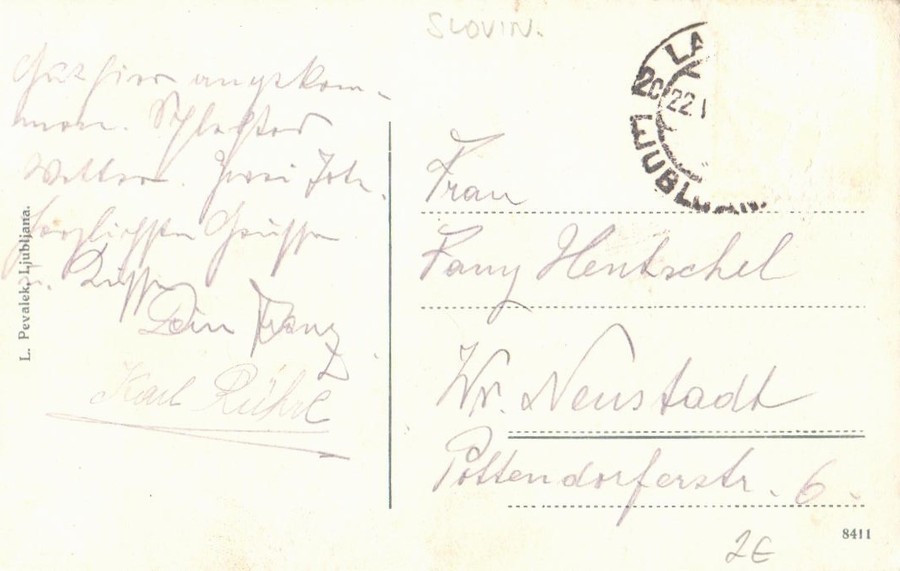 SLOVIN.
Gut hier angekom-
men. Schlechtes
Wetter.
herzlichsten Grüsse
u. Küsse
Dein Franz
Karl Rührl
L. Pevalek, Ljubljana.
LA
20 22.
LJUBLJANA
Frau
Fany Hentschel
Wr. Neustadt
Pottendorferstr. 6.
8411
2€